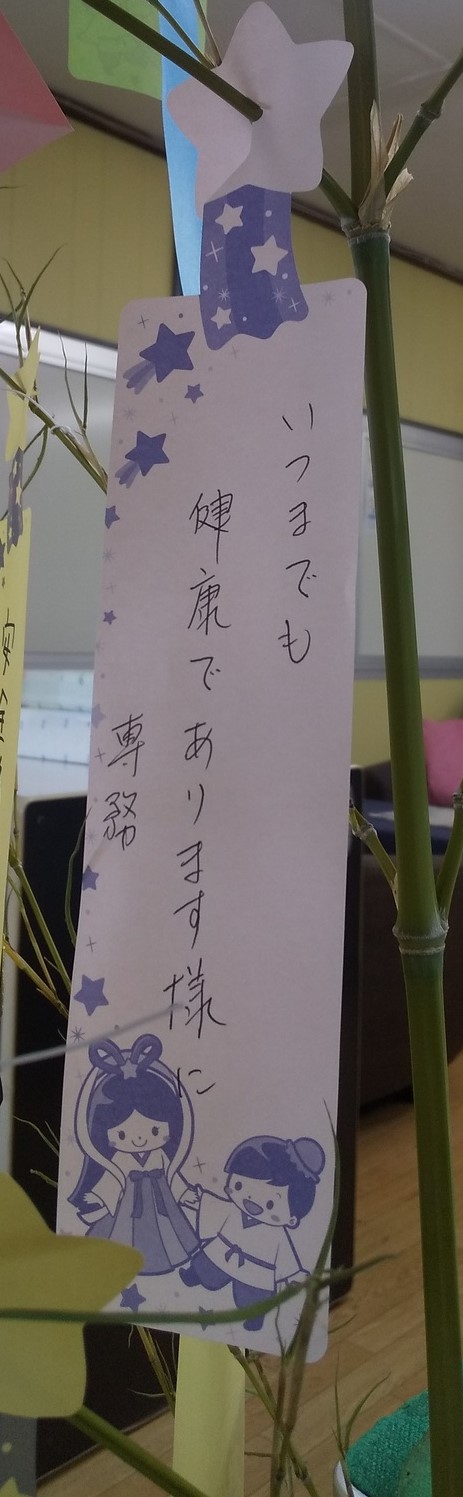 いつまでも
健康であります様に
専務